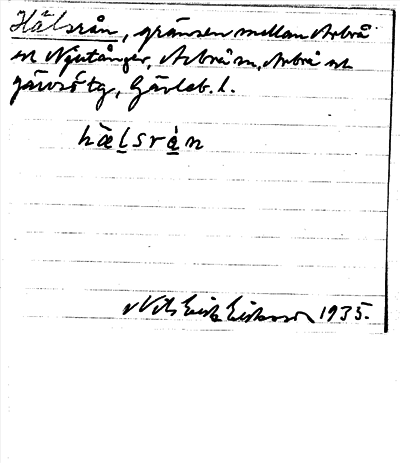 Hälsrån, gränsen mellan Arbrå
och Njutånger, Arbrå sn, Arbrå och
Järvsö tg, Gävleb. l.
hæ̀lsràn
Nils Erik Eriksson 1935.